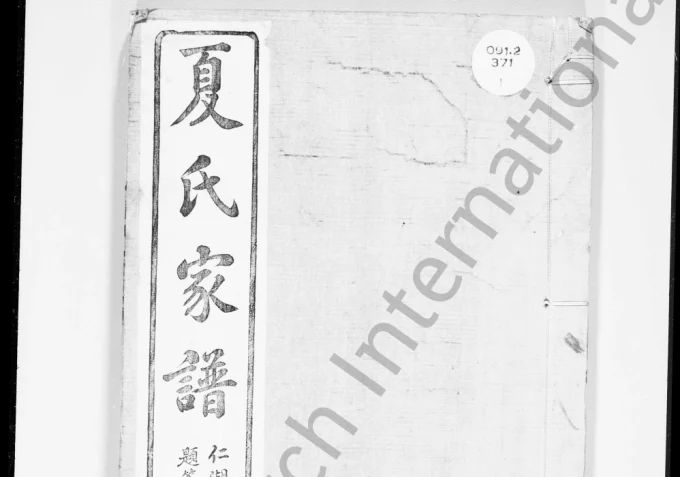 夏氏家譜
仁湖
題簽
091.2
371
1
ch International